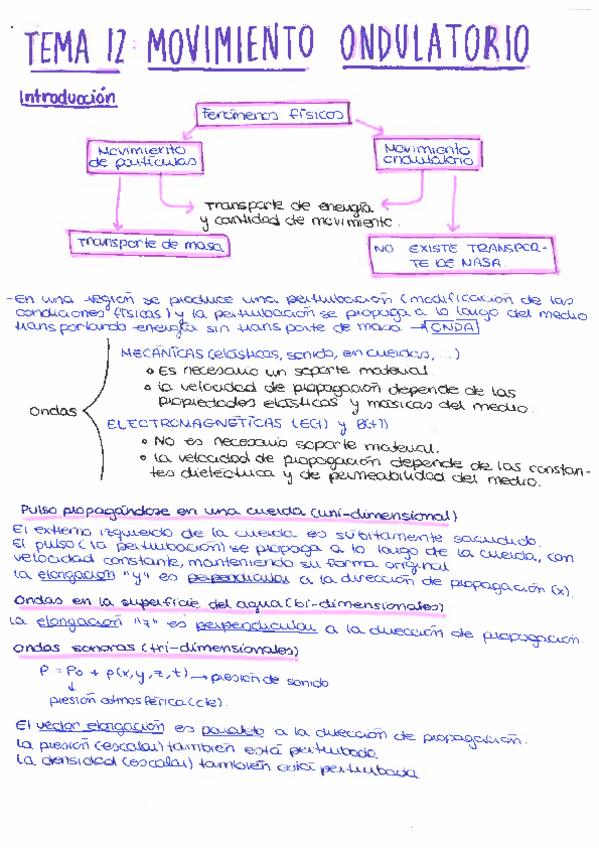 TEMA 12 MOVIMIENTO ONDULATORIO
Introducción
Fenómenos físicos
Movimiento
de partículas
Movimiento
ondulatorio
Transporte de energía
y cantidad de movimiento.
Transporte de masa
NO EXISTE TRANSPOR-
TE DE MASA.
-En una región se produce una perturbación (modificación de las
condiciones físicas) y la perturbación se propaga a lo largo del medio
transportando energía sin transporte de masa → ONDA
MECÁNICAS (elásticas, sonido, en cuerdas, ...)
Es necesario un soporte material
La velocidad de propagación depende de las
propiedades elásticas y másicas del medio.
Ondas
ELECTROMAGNÉTICAS (E(t) y B(t))
NO es necesario soporte material.
La velocidad de propagación depende de las constan-
tes dieléctrica y de permeabilidad del medio.
Pulso propagándose en una cuerda (uni-dimensional)
El extremo izquierdo de la cuerda es súbitamente sacudido.
El pulso (la perturbación) se propaga a lo largo de la cuerda, con
velocidad constante, manteniendo su forma original
La elongación "y" es perpendicular a la dirección de propagación (x).
Ondas en la superficie del agua (bi-dimensionales)
La elongación "z" es perpendicular a la dirección de propagación.
Ondas sonoras (tri-dimensionales)
P = P0 + p(x,y,z,t) → presión de sonido
presión atmosférica (cte).
El vector elongación es paralelo a la dirección de propagación.
La presión (escalar) también está perturbada.
La densidad (escalar) también está perturbada